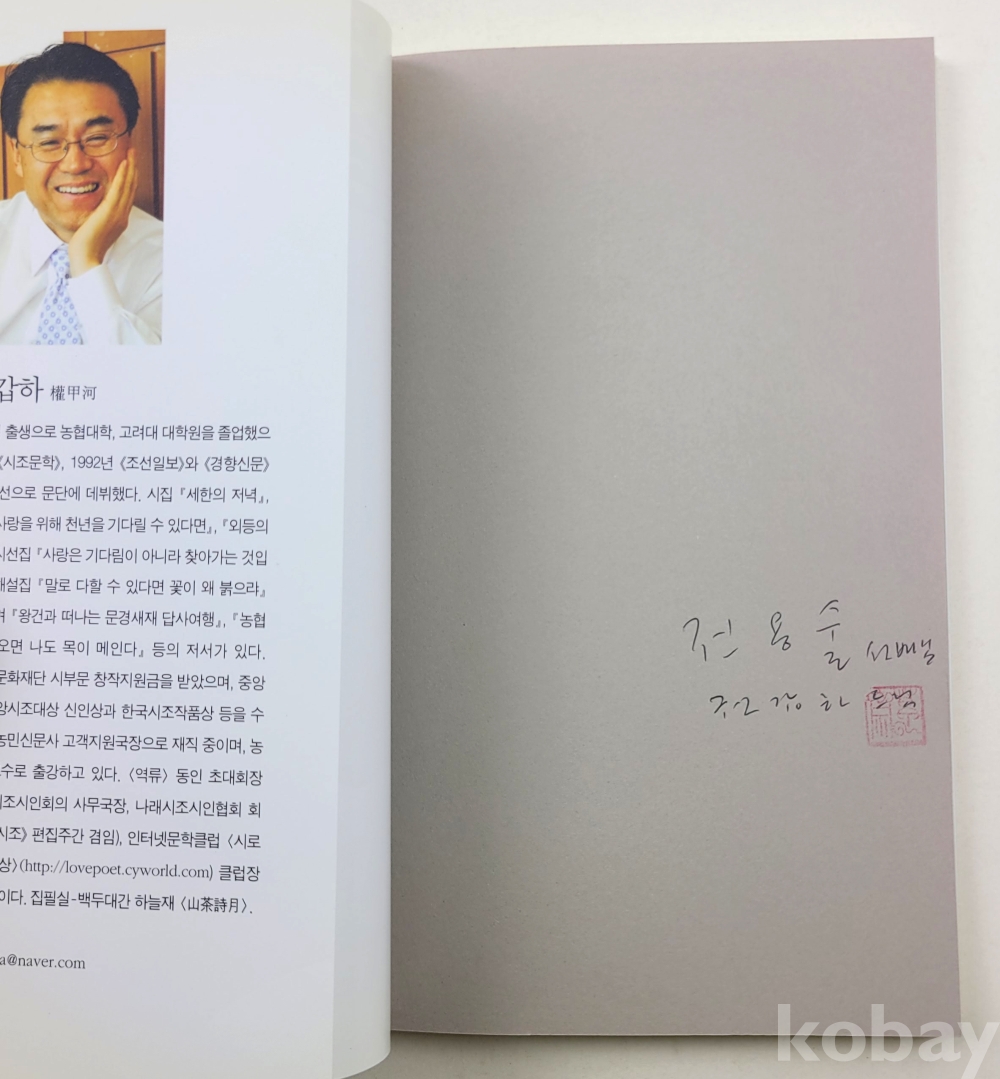 갑하 權甲河
출생으로 농협대학, 고려대 대학원을 졸업했으
《시조문학》, 1992년 《조선일보》와 《경향신문》
선으로 문단에 데뷔했다. 시집 『세한의 저녁』,
사랑을 위해 천년을 기다릴 수 있다면』, 『외등의
시선집 『사랑은 기다림이 아니라 찾아가는 것입
해설집 『말로 다할 수 있다면 꽃이 왜 붉으랴』
며 『왕건과 떠나는 문경새재 답사여행』, 『농협
오면 나도 목이 메인다』 등의 저서가 있다.
문화재단 시부문 창작지원금을 받았으며, 중앙
앙시조대상 신인상과 한국시조작품상 등을 수
농민신문사 고객지원국장으로 재직 중이며, 농
수로 출강하고 있다. 〈역류〉 동인 초대회장
시조시인회의 사무국장, 나래시조시인협회 회
시조》 편집주간 겸임), 인터넷문학클럽 〈시로
상〉(http://lovepoet.cyworld.com) 클럽장
이다. 집필실-백두대간 하늘재 〈山茶詩月〉.
a@naver.com
용술 선배님
드림
kobay